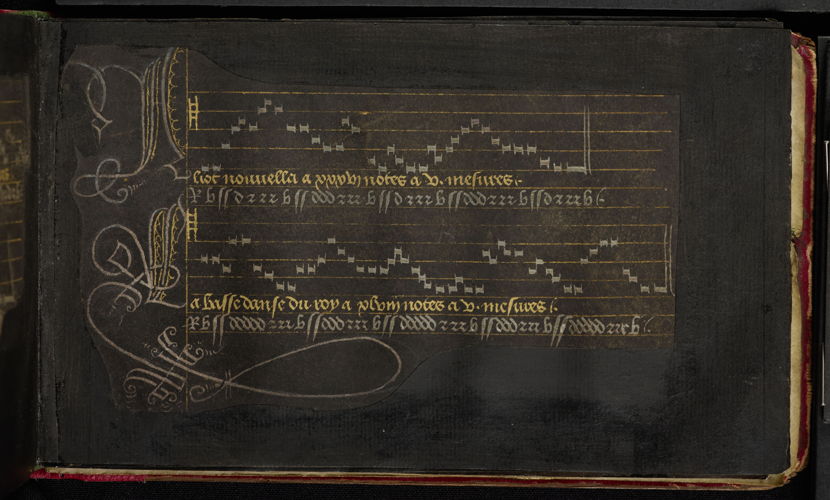 Aliot nouuella a xxxvi notes a v. mesures.
R b ss d r r r b ss ddd r r r b ss d r r r b ss ddd r r r b ss d r r r b
La basse danse du roy a xlviij notes a v. mesures.
R b ss ddddd r r r b ss ddd r r r b ss ddddd r r r b ss ddd r r r b ss ddddd r r r b